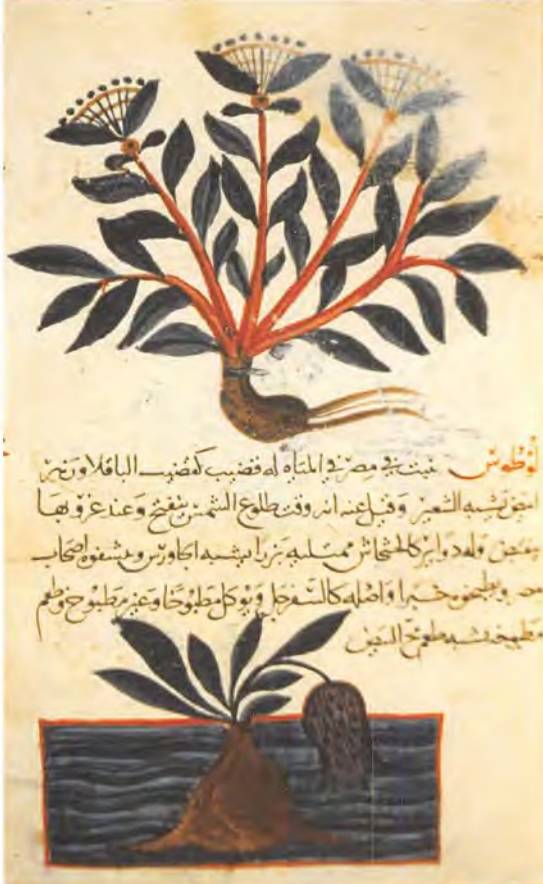 لوطوس ينبت في مصر في المياه له قضيب كقضيب الباقلا وزهر
ابيض يشبه الشعير وقيل عنه انه وقت طلوع الشمس ينفتح وعند غروبها
ينقبض وله دواير كالخشخاش ممتلية بزرا يشبه الجاورس ويشفوه اصحاب
مصر ويطبخوه خبزا واصله كالسفرجل ويوكل مطبوخا وغير مطبوخ وطعم
مطبوخه يشبه طعم مخ البيض